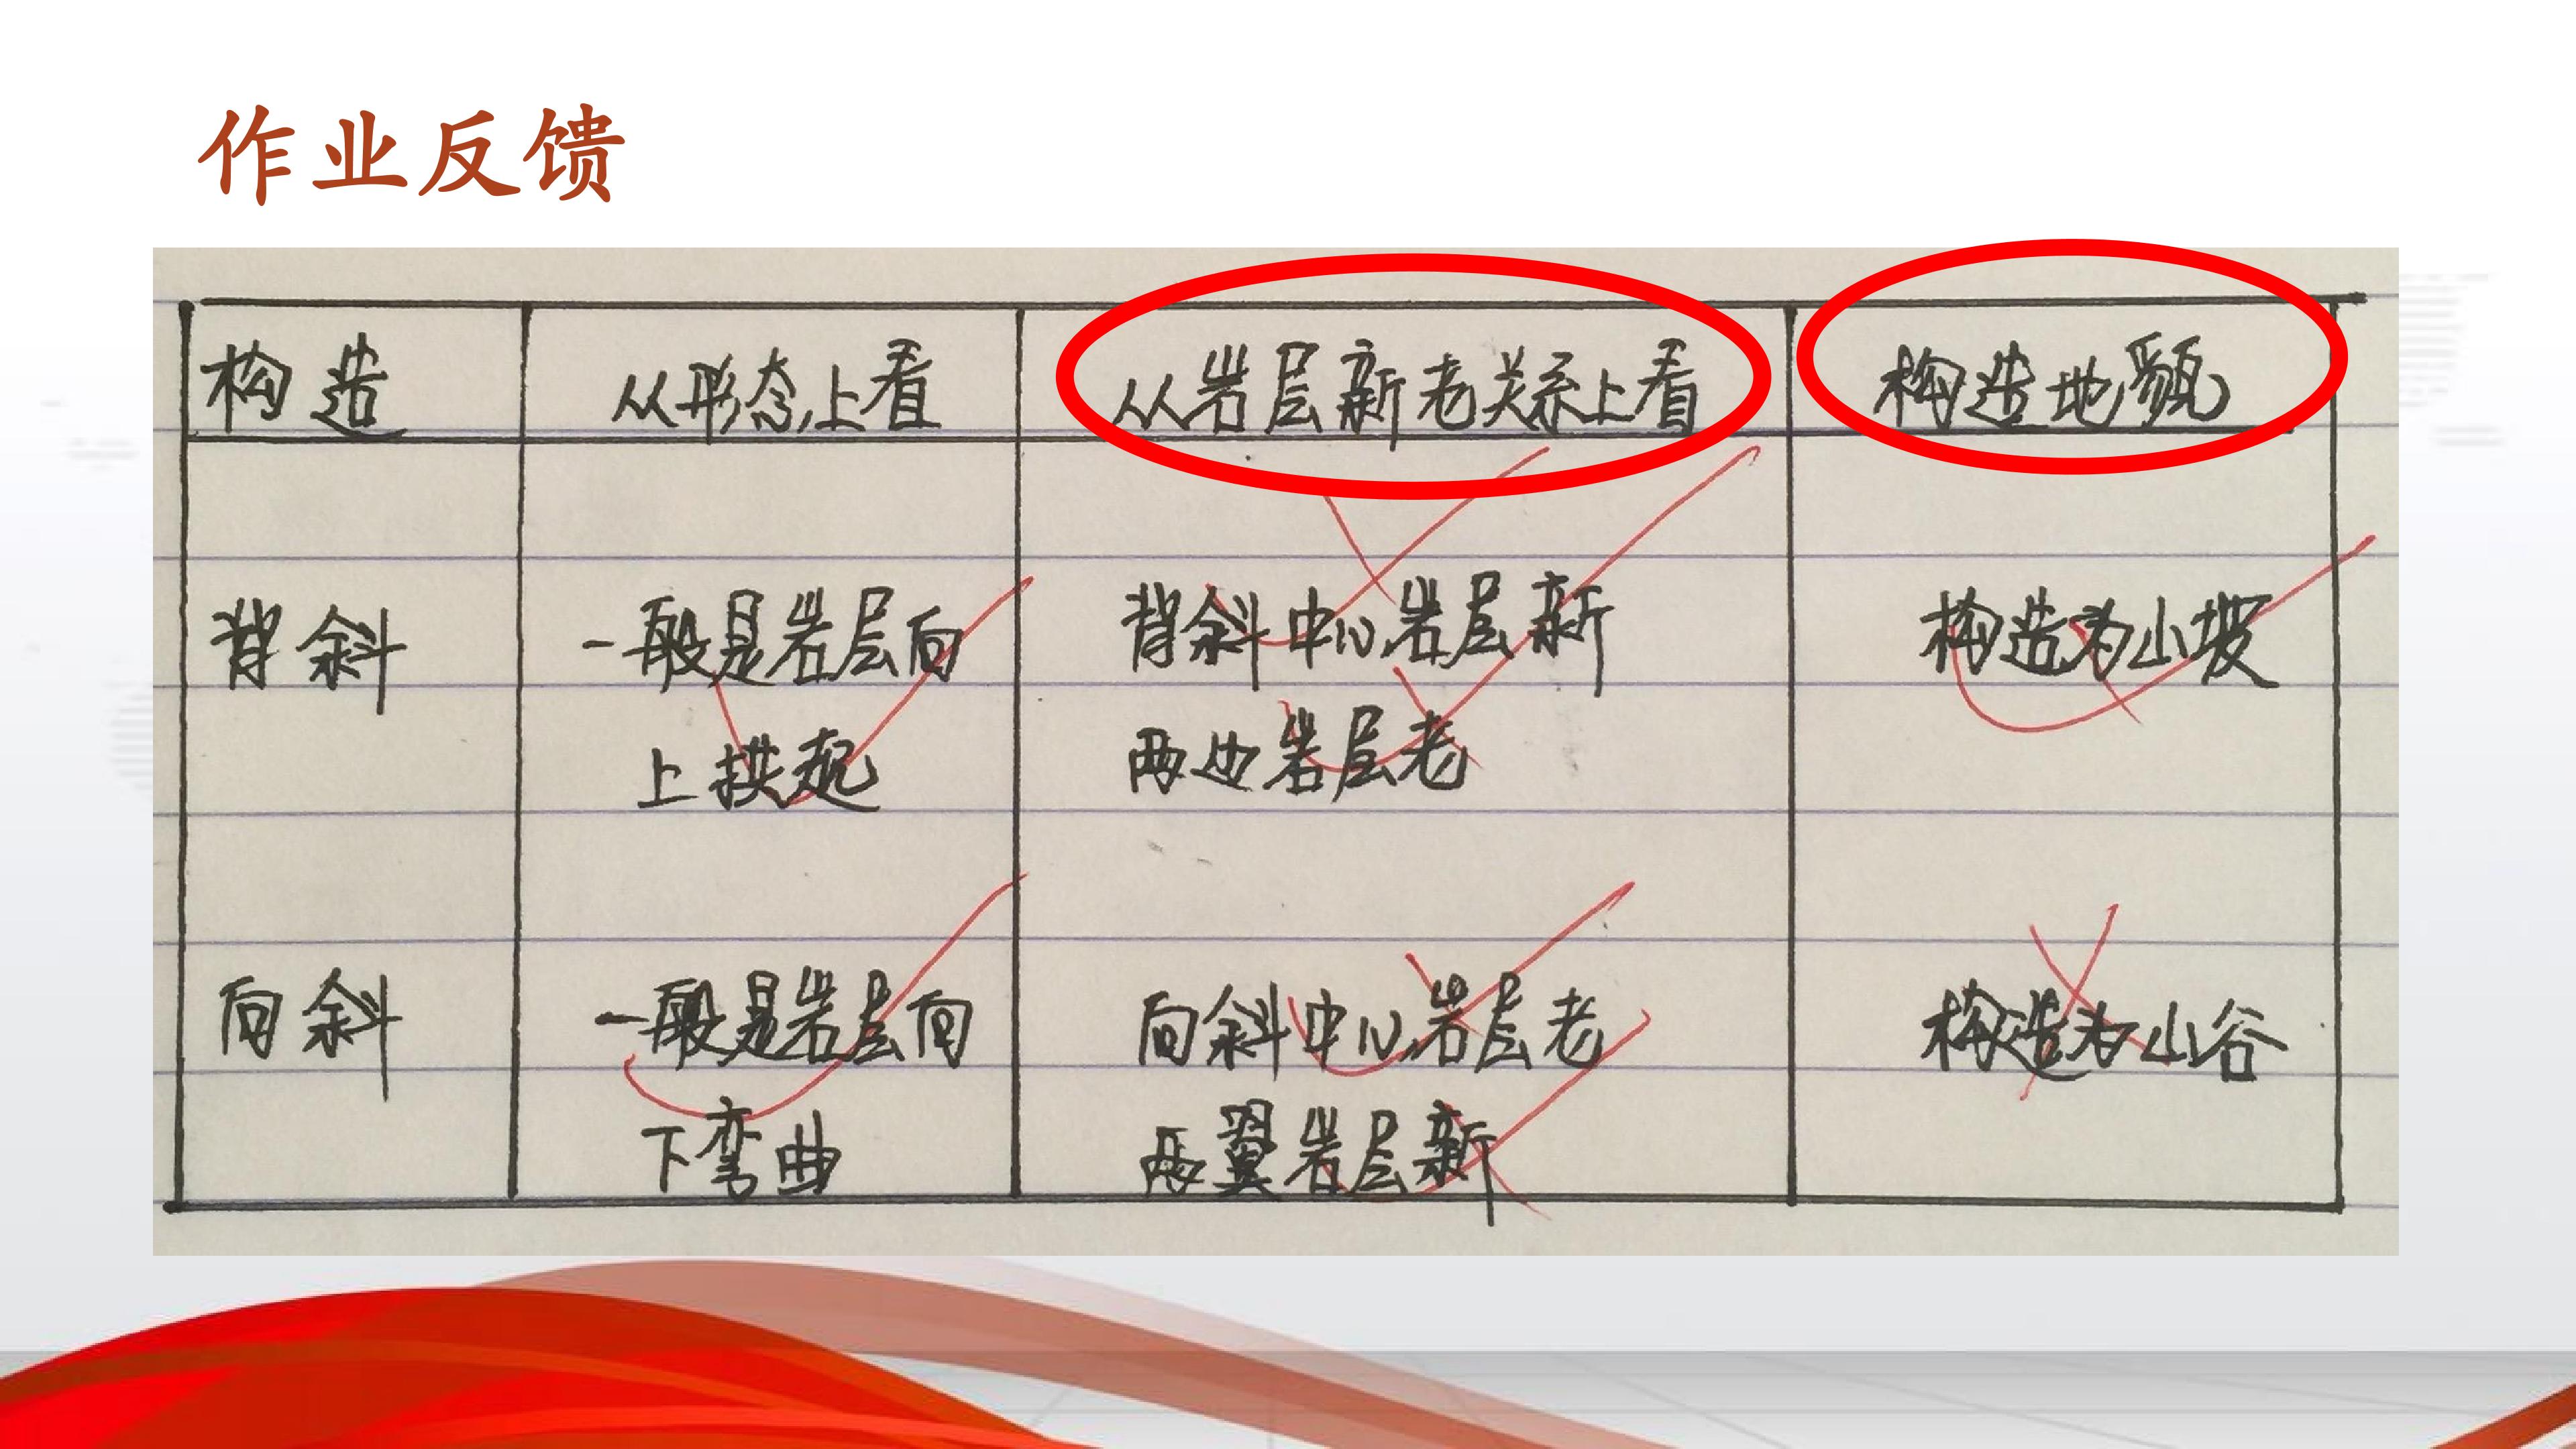 作业反馈
构造 从形态上看 从岩层新老关系上看 构造地貌
背斜 一般是岩层向 背斜中心岩层新 构造为山坡
上拱起 两边岩层老
向斜 一般是岩层向 向斜中心岩层老 构造为山谷
下弯曲 两翼岩层新